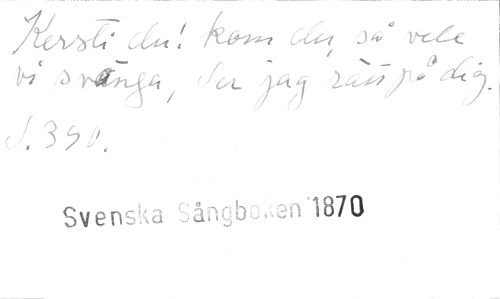 Kersti du! kom du, så vele
vi svänga, Ser jag rätt på dig.
S. 390.
Svenska Sångboken 1870